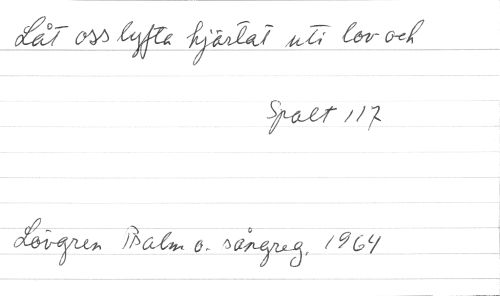 Låt oss lyfta hjärtat uti lov och
Spalt 117
Lövgren Psalm o. sångreg. 1964